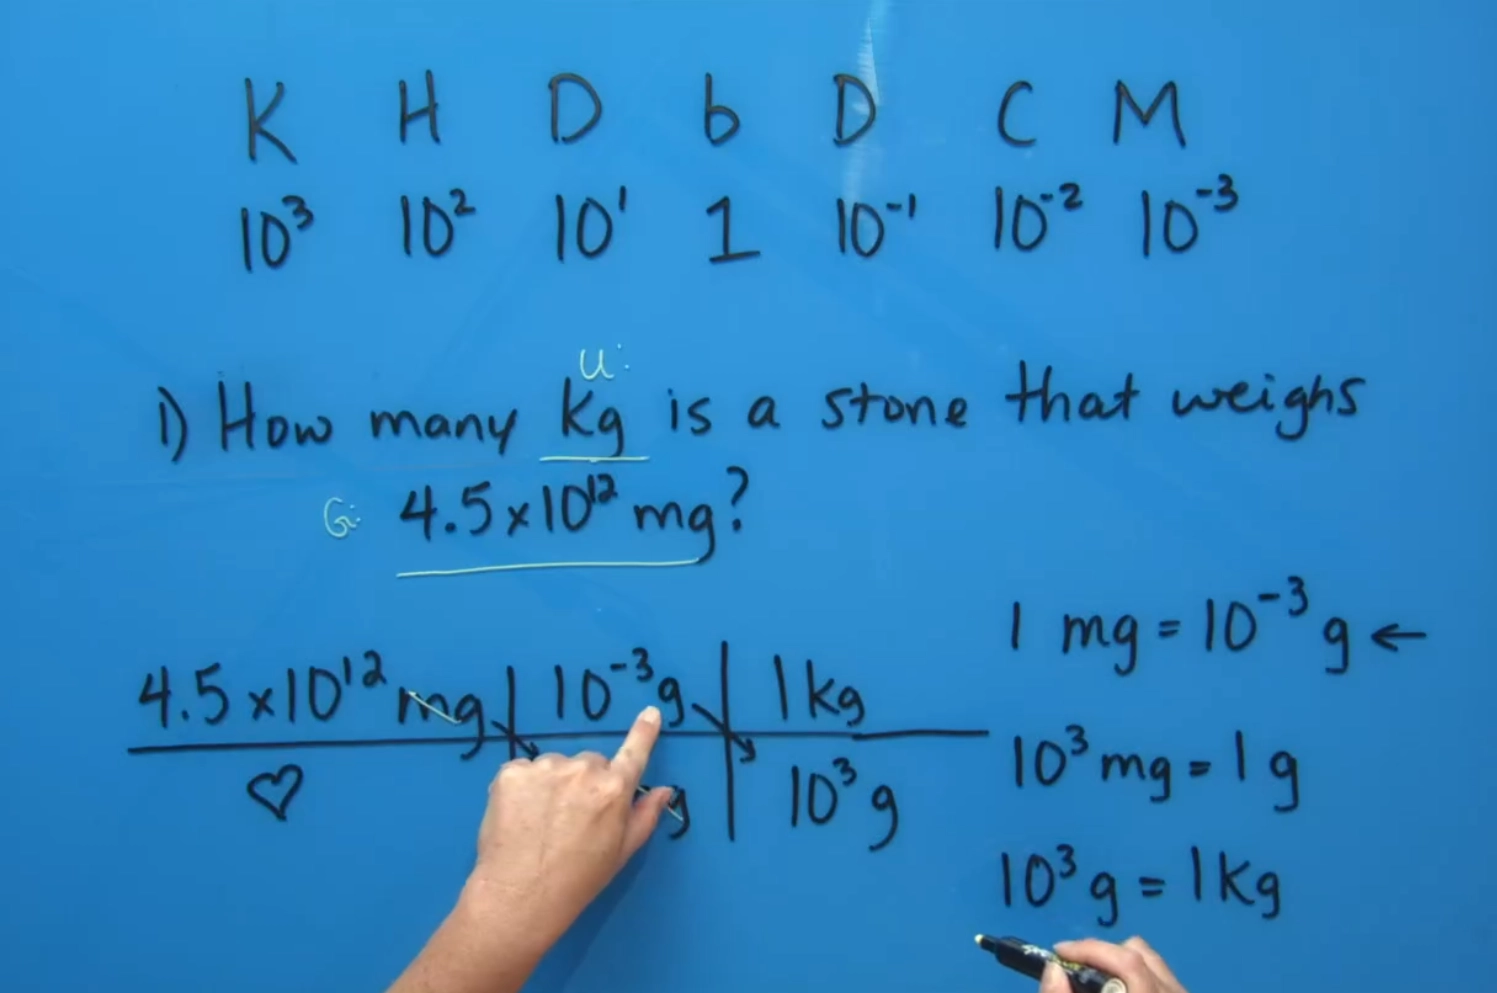 K H D b D C M
10³ 10² 10¹ 1 10⁻¹ 10⁻² 10⁻³
U:
1) How many kg is a stone that weighs
G: 4.5×10¹² mg?
1 mg = 10⁻³ g ←
4.5×10¹² mg | 10⁻³ g | 1 kg
♡ g | 10³ g
10³ mg = 1 g
10³ g = 1 kg